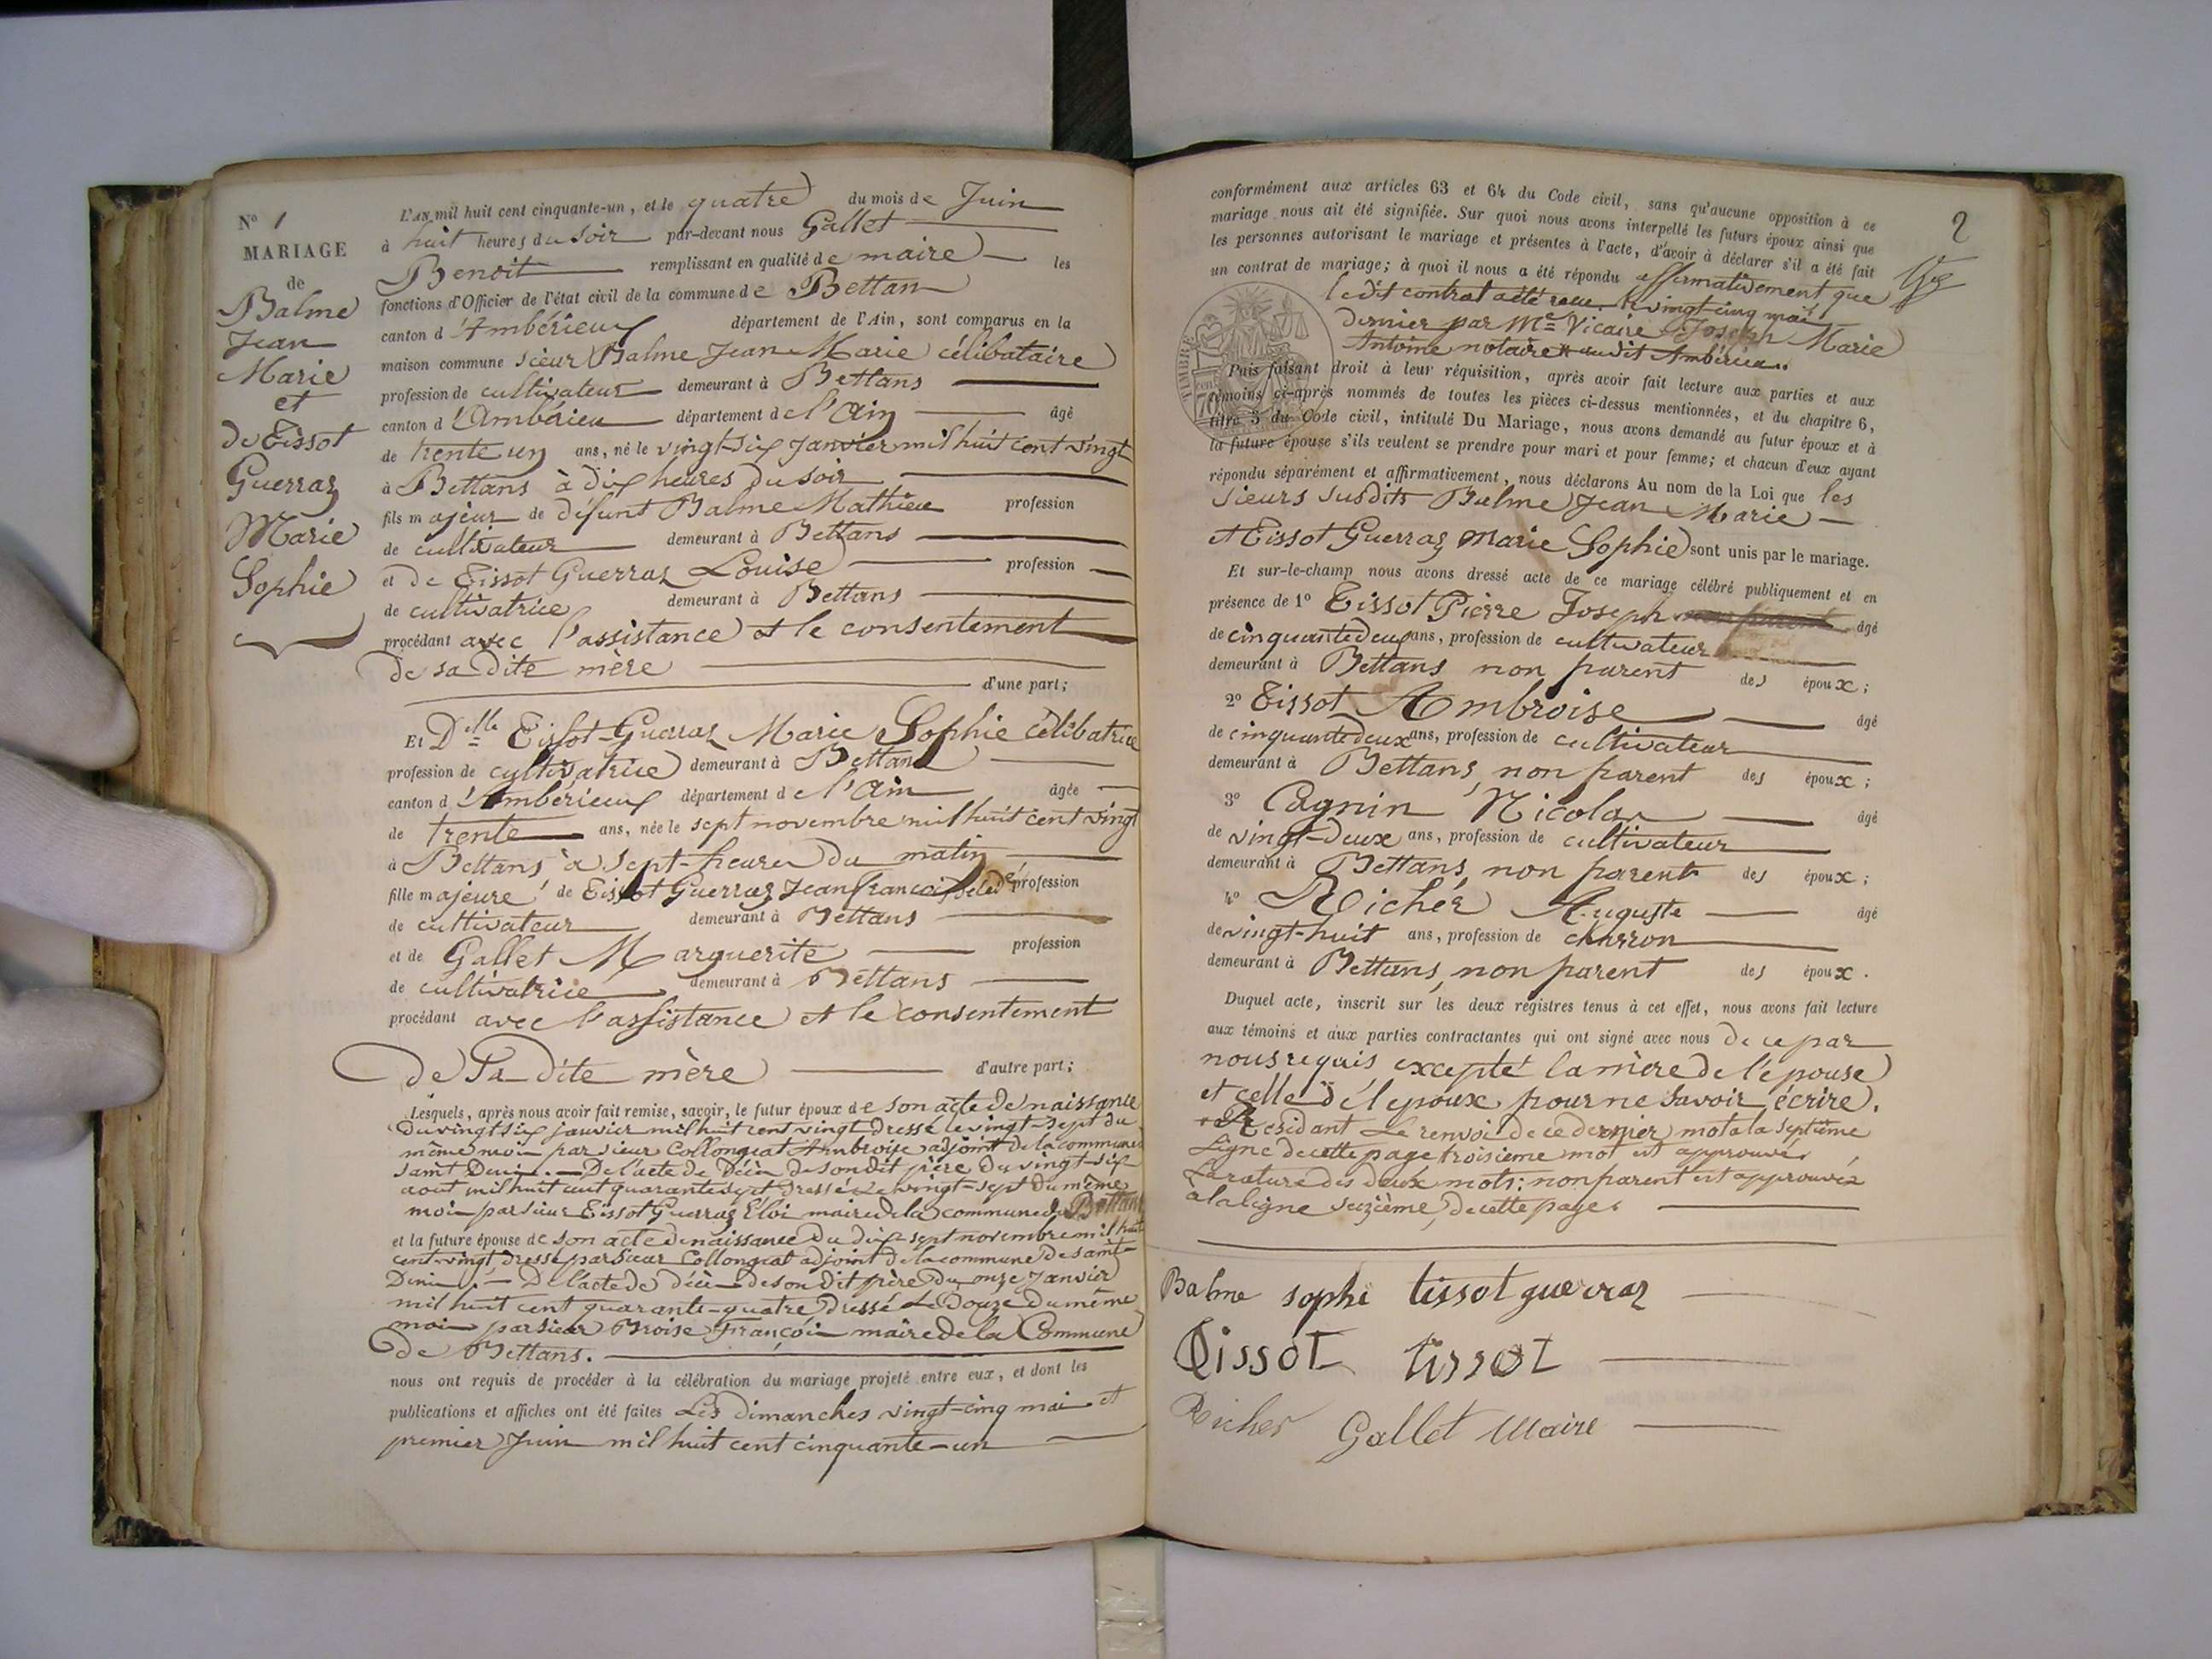 N° 1
MARIAGE
de
Balme
Jean
Marie
et
de Tissot
Guerraz
Marie
Sophie
L'AN mil huit cent cinquante-un, et le quatre du mois de Juin
à huit heures du soir par-devant nous Gallet
Benoit remplissant en qualité de maire les
fonctions d'Officier de l'état civil de la commune de Bettan
canton d'Ambérieux département de l'Ain, sont comparus en la
maison commune sieur Balme Jean Marie célibataire
profession de cultivateur demeurant à Bettans
canton d'Ambérieu département de l'Ain âgé
de trente un ans, né le vingt-six Janvier mil huit cent vingt
à Bettans à dix heures du soir
fils majeur de défunt Balme Mathieu profession
de cultivateur demeurant à Bettans
et de Tissot Guerraz Louise profession
de cultivatrice demeurant à Bettans
procédant avec l'assistance et le consentement
de sa dite mère
d'une part;
Et Dlle Tissot-Guerraz Marie Sophie célibatrice
profession de cultivatrice demeurant à Bettans
canton d'Ambérieux département de l'Ain âgée
de trente ans, née le sept novembre mil huit cent vingt
à Bettans à sept-heures du matin
fille majeure de Tissot Guerraz Jean francois décédé profession
de cultivateur demeurant à Bettans
et de Gallet Marguerite profession
de cultivatrice demeurant à Bettans
procédant avec l'assistance et le consentement
de Sa dite mère d'autre part;
Lesquels, après nous avoir fait remise, savoir, le futur époux de son acte de naissance
du vingt six janvier mil huit cent vingt dressé le vingt-sept du
même mois par sieur Collongeat Ambroise adjoint de la commune
saint Denis. — De l'acte de décès de son dit père du vingt-six
aout mil huit cent quarante sept dressé le vingt-sept du même
mois par sieur Tissot Guerraz Eloi maire de la commune de Bettans
et la future épouse de son acte de naissance du dix sept novembre mil huit
cent vingt dressé par sieur Collongeat adjoint de la commune de saint
Denis. — De l'acte de décès de son dit père du onze Janvier
mil huit cent quarante-quatre dressé le Douze du même
mois par sieur Broise François maire de la Commune
de Bettans.
nous ont requis de procéder à la célébration du mariage projeté entre eux, et dont les
publications et affiches ont été faites Les dimanches vingt-cinq mai et
premier Juin mil huit cent cinquante-un
2
conformément aux articles 63 et 64 du Code civil, sans qu'aucune opposition à ce
mariage nous ait été signifiée. Sur quoi nous avons interpellé les futurs époux ainsi que
les personnes autorisant le mariage et présentes à l'acte, d'avoir à déclarer s'il a été fait
un contrat de mariage; à quoi il nous a été répondu affirmativement que
le dit contrat a été recu le vingt-cinq mai
dernier par Me Vicaire Joseph Marie
Antoine notaire audit Ambérieu.
TIMBRE
70
Puis faisant droit à leur réquisition, après avoir fait lecture aux parties et aux
témoins ci-après nommés de toutes les pièces ci-dessus mentionnées, et du chapitre 6,
titre 5 du Code civil, intitulé Du Mariage, nous avons demandé au futur époux et à
la future épouse s'ils veulent se prendre pour mari et pour femme; et chacun d'eux ayant
répondu séparément et affirmativement, nous déclarons Au nom de la Loi que les
sieurs susdits Balme Jean Marie
et Tissot Guerraz Marie Sophie sont unis par le mariage.
Et sur-le-champ nous avons dressé acte de ce mariage célébré publiquement et en
présence de 1° Tissot Pierre Joseph non parent âgé
de cinquante deux ans, profession de cultivateur
demeurant à Bettans non parent des époux;
2° Tissot Ambroise âgé
de cinquante deux ans, profession de cultivateur
demeurant à Bettans, non parent des époux;
3° Cagnin Nicolas âgé
de vingt-deux ans, profession de cultivateur
demeurant à Bettans, non parent des époux;
4° Richer Auguste âgé
de vingt-huit ans, profession de charron
demeurant à Bettans, non parent des époux.
Duquel acte, inscrit sur les deux registres tenus à cet effet, nous avons fait lecture
aux témoins et aux parties contractantes qui ont signé avec nous de ce par
nous requis excepté la mère de l'épouse
et celle de l'epoux pour ne savoir écrire.
Residant Le renvoi de ce dernier mot a la septième
Ligne de cette page troisième mot est approuvé.
La rature des deux mots: non parent est approuvée
a la ligne seizième de cette page.
Balme sophi tissot guerraz
Tissot tissot
Richer Gallet Maire